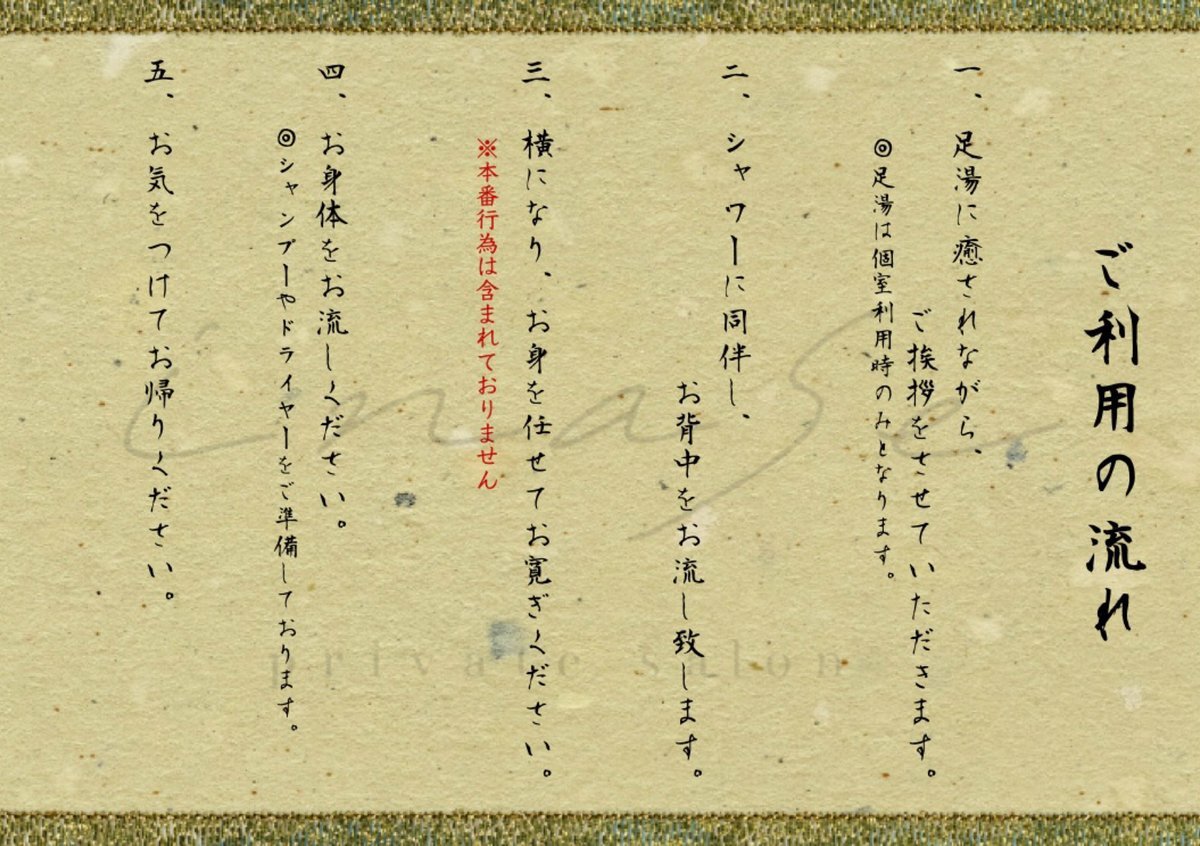 ご利用の流れ
一、足湯に癒されながら、
ご挨拶をさせていただきます。
◎足湯は個室利用時のみとなります。
二、シャワーに同伴し、
お背中をお流し致します。
三、横になり、お身を任せてお寛ぎください。
※本番行為は含まれておりません
四、お身体をお流しください。
◎シャンプーやドライヤーをご準備しております。
五、お気をつけてお帰りください。
private salon